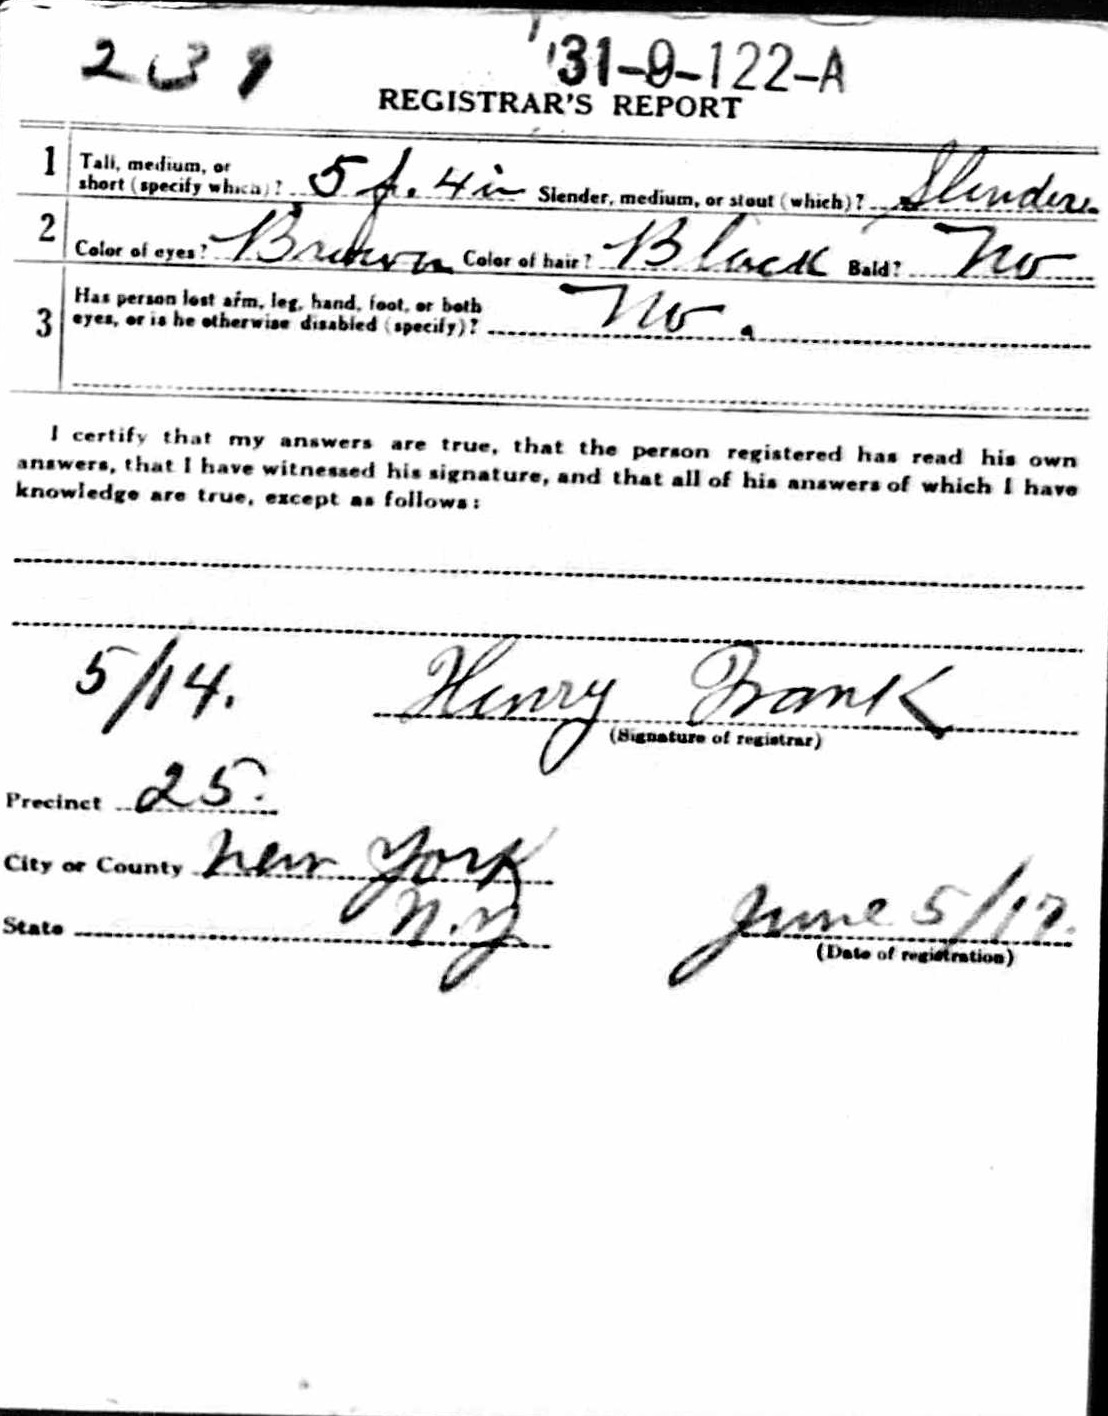 239
31-9-122-A
REGISTRAR'S REPORT
1 Tall, medium, or short (specify which)? 5 f. 4 in Slender, medium, or stout (which)? Slender.
2 Color of eyes? Brown Color of hair? Black Bald? No
3 Has person lost arm, leg, hand, foot, or both
eyes, or is he otherwise disabled (specify)? No.
I certify that my answers are true, that the person registered has read his own
answers, that I have witnessed his signature, and that all of his answers of which I have
knowledge are true, except as follows:
5/14. Henry Frank
(Signature of registrar)
Precinct 25.
City or County New York
State N.Y June 5/17.
(Date of registration)